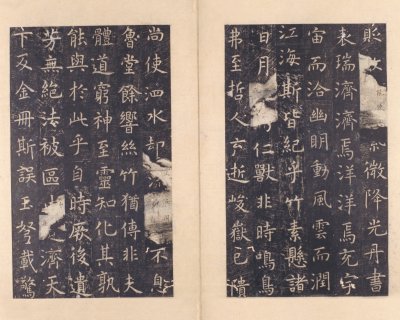 降光丹書
表瑞濟濟焉洋洋焉充宇
宙而洽幽明動風雲而潤
江海斯皆紀乎竹素懸諸
日月仁獸非時鳴鳥
弗至哲人云逝峻嶽已隤
尚使泗水却不息
魯堂餘響絲竹猶傳非夫
體道窮神至靈知化其孰
能與於此乎自時厥後遺
芳無絕法被區濟天
下及金冊斯誤玉弩載驚